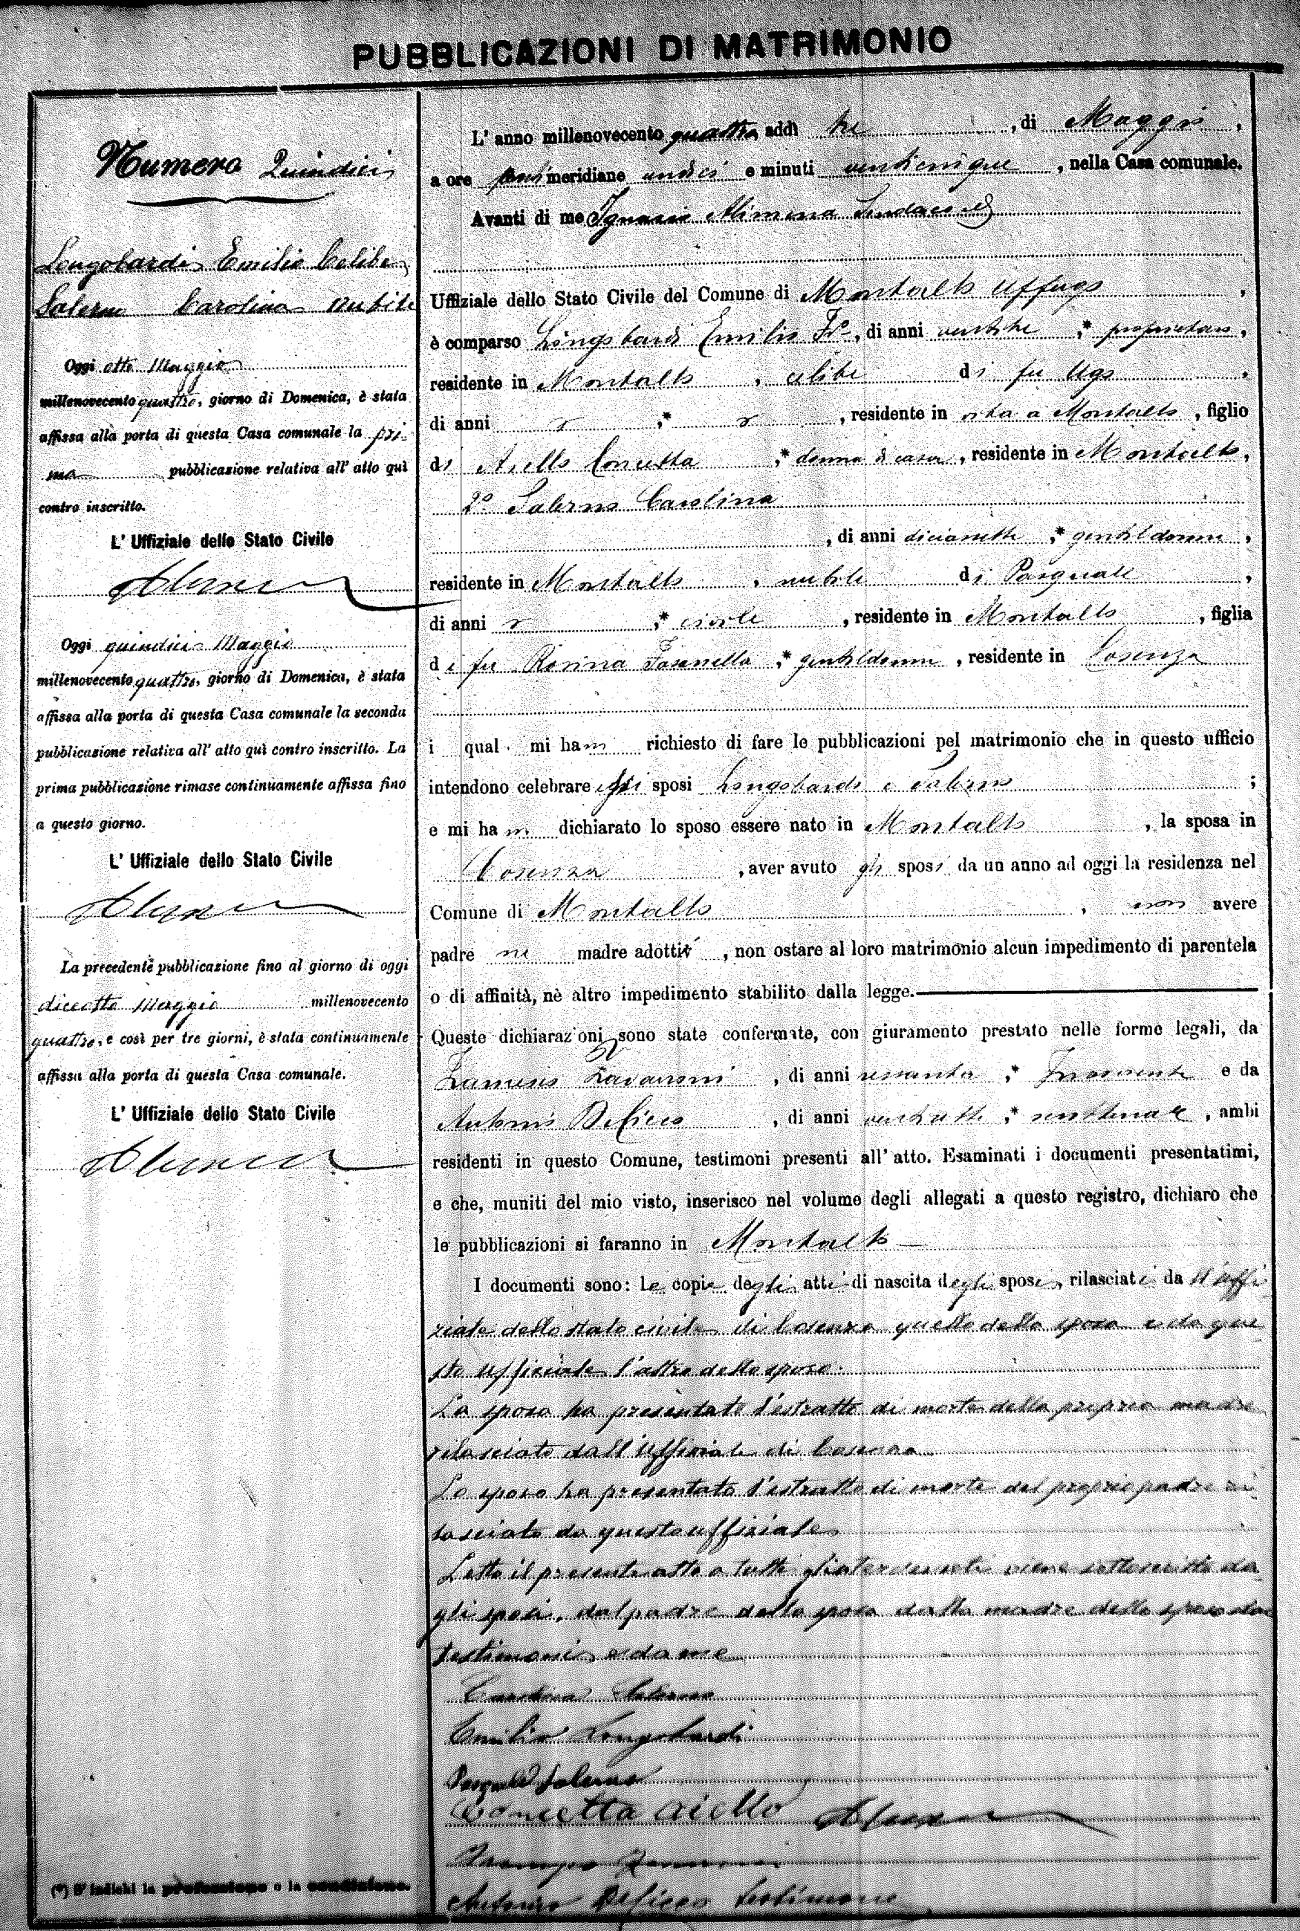 PUBBLICAZIONI DI MATRIMONIO
Numero Quindici
Longobardi Emilio Celibe
Salerno Carolina nubile
Oggi otto Maggio
millenovecento quattro, giorno di Domenica, è stata
affissa alla porta di questa Casa comunale la pri-
ma pubblicazione relativa all' atto quì
contro inscritto.
L' Uffiziale dello Stato Civile
Alimena
Oggi quindici Maggio
millenovecento quattro, giorno di Domenica, è stata
affissa alla porta di questa Casa comunale la seconda
pubblicazione relativa all' atto quì contro inscritto. La
prima pubblicazione rimase continuamente affissa fino
a questo giorno.
L' Uffiziale dello Stato Civile
Alimena
La precedente pubblicazione fino al giorno di oggi
diciotto Maggio millenovecento
quattro, e così per tre giorni, è stata continuamente
affissa alla porta di questa Casa comunale.
L' Uffiziale dello Stato Civile
Alimena
(*) S' indichi la professione o la condizione.
L' anno millenovecento quattro, addì tre, di Maggio,
a ore meridiane undici e minuti venticinque, nella Casa comunale.
Avanti di me Ignazio Alimena Sindaco ed
Uffiziale dello Stato Civile del Comune di Montalto Uffugo,
è comparso Longobardi Emilio Fr°, di anni ventitre, * proprietario,
residente in Montalto, celibe di fu Ugo,
di anni , * , residente in vita a Montalto, figlio
di Aiello Concetta, * donna di casa, residente in Montalto,
2° Salerno Carolina
, di anni diciasette, * gentildonna,
residente in Montalto, nubile di Pasquale,
di anni , * civile, residente in Montalto, figlia
di fu Rosina Fasanella, * gentildonna, residente in Cosenza
i qual. mi han richiesto di fare le pubblicazioni pel matrimonio che in questo ufficio
intendono celebrare essi sposi Longobardi e Salerno ;
e mi han dichiarato lo sposo essere nato in Montalto, la sposa in
Cosenza, aver avuto gli sposi da un anno ad oggi la residenza nel
Comune di Montalto, non avere
padre nè madre adottivi, non ostare al loro matrimonio alcun impedimento di parentela
o di affinità, nè altro impedimento stabilito dalla legge.
Queste dichiarazioni sono state confermate, con giuramento prestato nelle forme legali, da
Francesco Zavarroni, di anni sessanta, * Inserviente e da
Antonio De Cicco, di anni ventisette, * , ambi
residenti in questo Comune, testimoni presenti all' atto. Esaminati i documenti presentatimi,
e che, muniti del mio visto, inserisco nel volume degli allegati a questo registro, dichiaro che
le pubblicazioni si faranno in Montalto
I documenti sono: Le copie degli atti di nascita degli sposi, rilasciati da ll'uffi
ziale dello stato civile di Cosenza quello della sposa e da que
sto ufficiale l'altro dello sposo.
La sposa ha presentato l'estratto di morte della propria madre
rilasciato dall'Uffiziale di Cosenza
Lo sposo ha presentato l'estratto di morte del proprio padre ri
lasciato da questo uffiziale
Letto il presente atto a tutti gl'intervenuti viene sottoscritto da
gli sposi, dal padre della sposa dalla madre dello sposo dai
testimoni e da me
Carolina Salerno
Emilio Longobardi
Pasquale Salerno
Concetta Aiello Alimena
Antonio De Cicco testimone